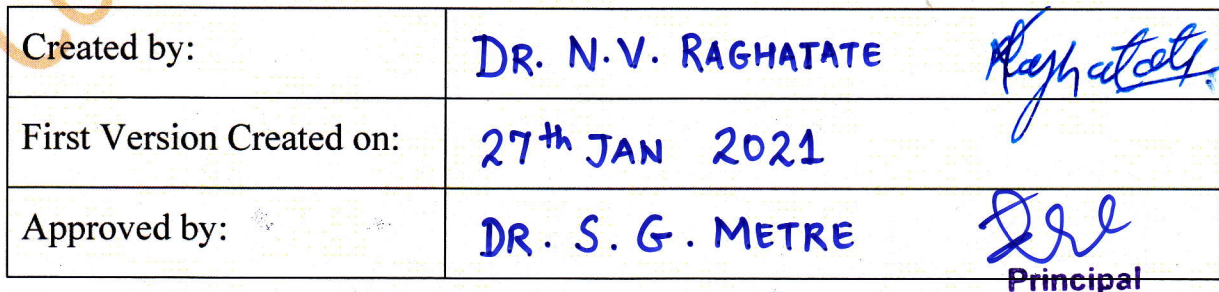 Created by: DR. N.V. RAGHATATE Raghatate
First Version Created on: 27th JAN 2021
Approved by: DR. S. G. METRE
Principal